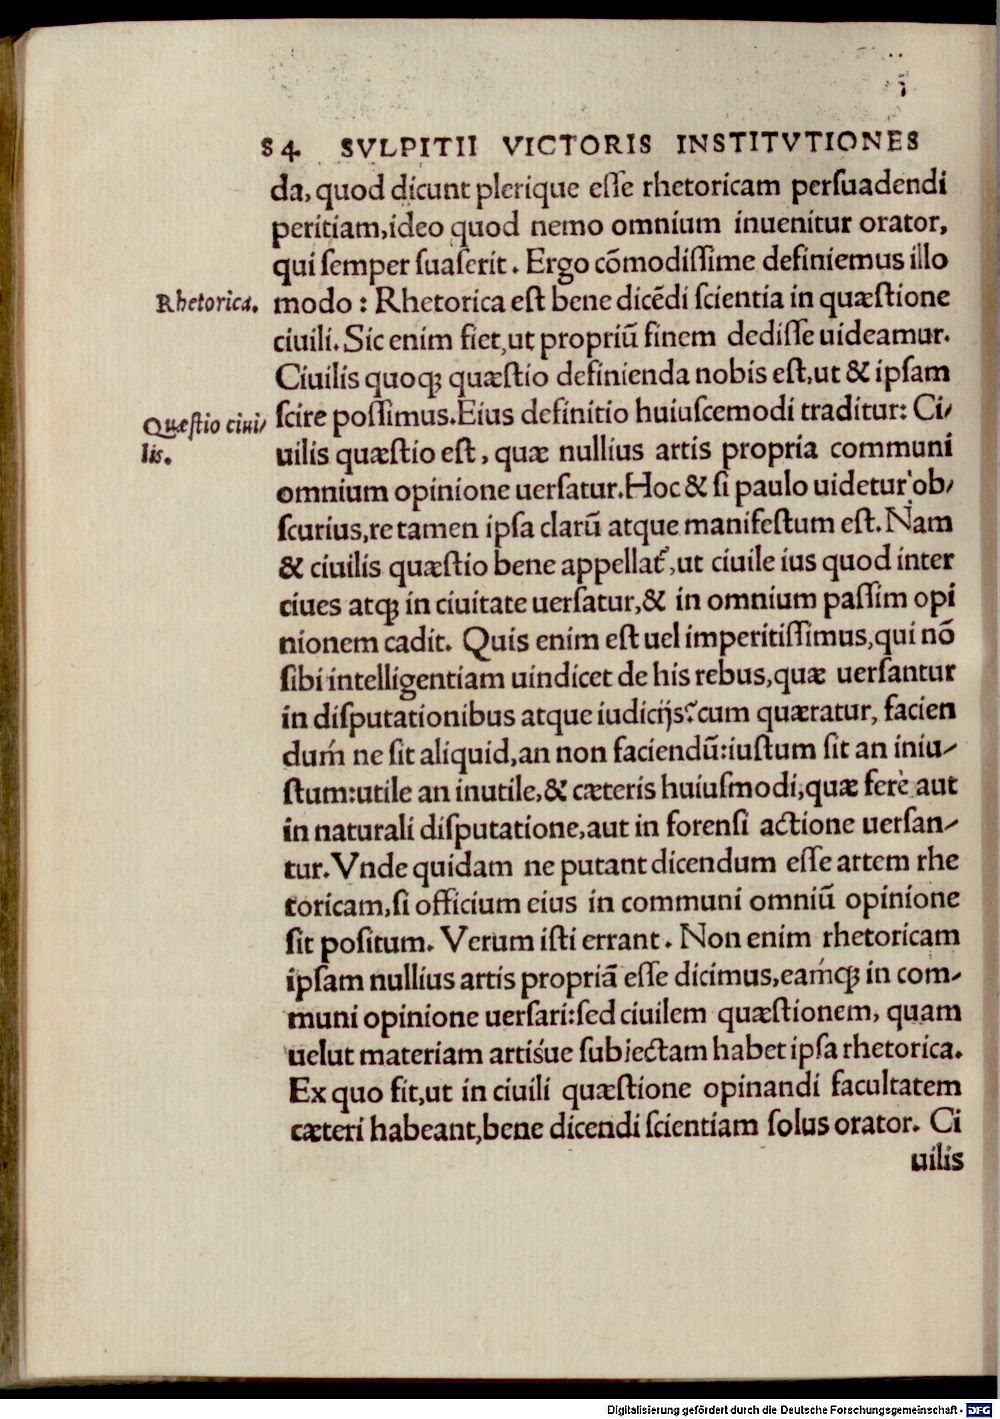 84 SVLPITII VICTORIS INSTITVTIONES
da, quod dicunt plerique eſſe rhetoricam perſuadendi
peritiam,ideo quod nemo omnium inuenitur orator,
qui ſemper ſuaſerit. Ergo cõmodiſſime definiemus illo
Rhetorica. modo: Rhetorica est bene dicẽdi ſcientia in quæſtione
ciuili. Sic enim fiet,ut propriũ finem dediſſe uideamur.
Ciuilis quoqꝫ quæſtio definienda nobis eſt,ut & ipſam
Quæſtio ciui/ ſcire poſſimus.Eius definitio huiuſcemodi traditur: Ci/
lis. uilis quæſtio eſt, quæ nullius artis propria communi
omnium opinione uerſatur.Hoc & ſi paulo uidetur ob/
ſcurius,re tamen ipſa clarũ atque manifeſtum eſt. Nam
& ciuilis quæſtio bene appellat᷑,ut ciuile ius quod inter
ciues atqꝫ in ciuitate uerſatur,& in omnium paſſim opi
nionem cadit. Quis enim eſt uel imperitiſſimus,qui nõ
ſibi intelligentiam uindicet de his rebus,quæ uerſantur
in diſputationibus atque iudicijs? cum quæratur, facien
dum´ ne ſit aliquid,an non faciendũ:iuſtum ſit an iniu/
ſtum:utile an inutile,& cæteris huiuſmodi,quæ ferè aut
in naturali diſputatione,aut in forenſi actione uerſan/
tur. Vnde quidam ne putant dicendum eſſe artem rhe
toricam,ſi officium eius in communi omniũ opinione
ſit poſitum. Verum iſti errant. Non enim rhetoricam
ipſam nullius artis propriã eſſe dicimus,eam´qꝫ in com/
muni opinione uerſari:ſed ciuilem quæſtionem, quam
uelut materiam artis´ue ſubiectam habet ipſa rhetorica.
Ex quo fit,ut in ciuili quæſtione opinandi facultatem
cæteri habeant,bene dicendi ſcientiam ſolus orator. Ci
uilis
Digitalisierung gefördert durch die Deutsche Forschungsgemeinschaft - DFG